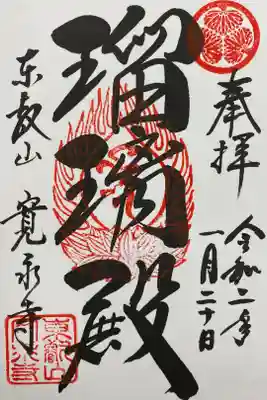 奉拝
令和二年
一月二十日
瑠璃殿
東叡山
寛永寺